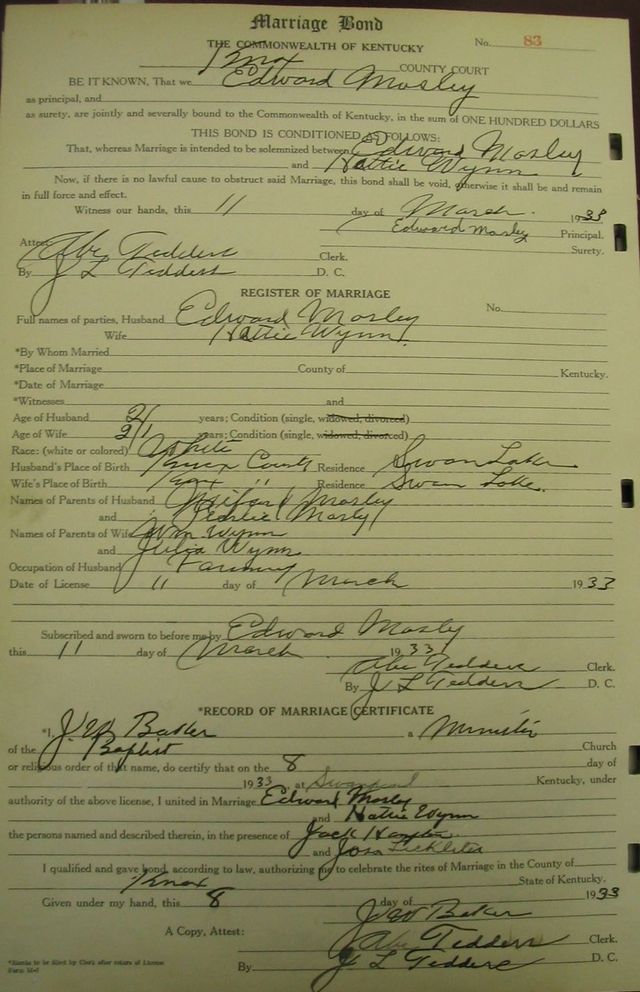 Marriage Bond
THE COMMONWEALTH OF KENTUCKY No. 83
Knox COUNTY COURT
BE IT KNOWN, That we Edward Mosley
as principal, and
as surety, are jointly and severally bound to the Commonwealth of Kentucky, in the sum of ONE HUNDRED DOLLARS
THIS BOND IS CONDITIONED AS FOLLOWS:
That, whereas Marriage is intended to be solemnized between Edward Mosley
and Hattie Wynn
Now, if there is no lawful cause to obstruct said Marriage, this bond shall be void, otherwise it shall be and remain
in full force and effect.
Witness our hands, this 11 day of March 1933
Edward Mosley Principal.
Attest Surety.
Abe Tedders Clerk.
By J L Tedders D. C.
REGISTER OF MARRIAGE
Full names of parties, Husband Edward Mosley No.
Wife Hattie Wynn
*By Whom Married
*Place of Marriage County of Kentucky.
*Date of Marriage
*Witnesses and
Age of Husband 21 years; Condition (single, widowed, divorced)
Age of Wife 21 years; Condition (single, widowed, divorced)
Race: (white or colored) White
Husband's Place of Birth Knox County Residence Swan Lake
Wife's Place of Birth Knox " Residence Swan Lake.
Names of Parents of Husband Mosley
and
Names of Parents of Wife Wm Wynn
and Julia Wynn
Occupation of Husband
Date of License 11 day of March 1933
Subscribed and sworn to before me by Edward Mosly
this 11 day of March 1933
Abe Tedders Clerk.
By J L Tedders D. C.
*RECORD OF MARRIAGE CERTIFICATE
*I, J.W. Baker a Minister
of the Baptist Church
or religious order of that name, do certify that on the 8 day of
1933 at Kentucky, under
authority of the above license, I united in Marriage Edward Mosley
and Hattie Wynn
the persons named and described therein, in the presence of Jack
and
I qualified and gave bond, according to law, authorizing me to celebrate the rites of Marriage in the County of
Knox State of Kentucky.
Given under my hand, this 8 day of 1933
J W Baker
A Copy, Attest: Abe Tedders Clerk.
By J L Tedders D. C.
*Blanks to be filled by Clerk after return of License